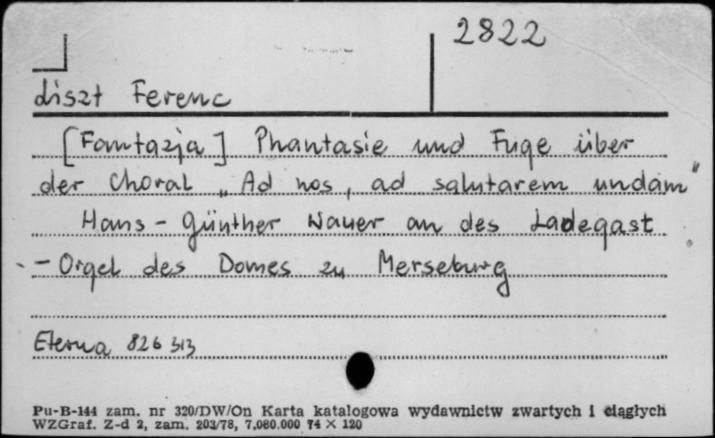 2822
Liszt Ferenc
[Fantazja] Phantasie und Fuge über
der Choral „Ad nos, ad salutarem undam"
Hans-Günther Wauer an des Ladegast
-Orgel des Domes zu Merseburg
Eterna 826 313
Pu-B-144 zam. nr 320/DW/On Karta katalogowa wydawnictw zwartych i ciągłych
WZGraf. Z-d 2, zam. 203/78, 7.000.000 74 × 120